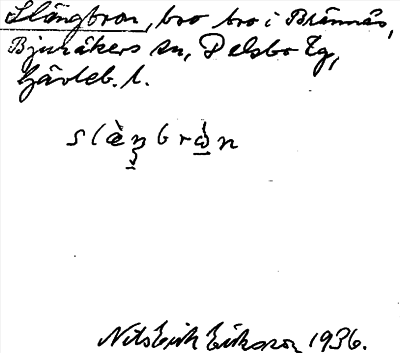 Slängbron, bro bro i Brännås,
Bjuråkers sn, Delsbo tg,
Gävleb. l.
slæ̀ŋbrån
Nils Erik Eriksson 1936.